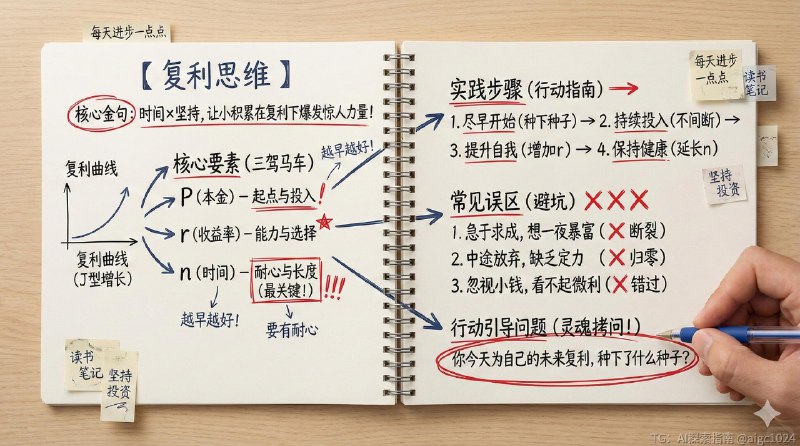 每天进步一点点
【复利思维】
核心金句：时间×坚持，让小积累在复利下爆发惊人力量！
复利曲线
复利曲线
（J型增长）
核心要素（三驾马车）
越早越好！
P（本金）－起点与投入！
r（收益率）－能力与选择
n（时间）－耐心与长度
（最关键！）!!!
越早越好！
要有耐心
读书
笔记
坚持
投资
实践步骤（行动指南）→
1. 尽早开始（种下种子）→ 2. 持续投入（不间断）→
3. 提升自我（增加r）→ 4. 保持健康（延长n）
常见误区（避坑）×××
1. 急于求成，想一夜暴富（×断裂）
2. 中途放弃，缺乏定力（×归零）
3. 忽视小钱，看不起微利（×错过）
行动引导问题（灵魂拷问！）
你今天为自己的未来复利，种下了什么种子？
每天进步
一点点
读书
笔记
坚持
投资
TG：AI探索指南 @aigc1024